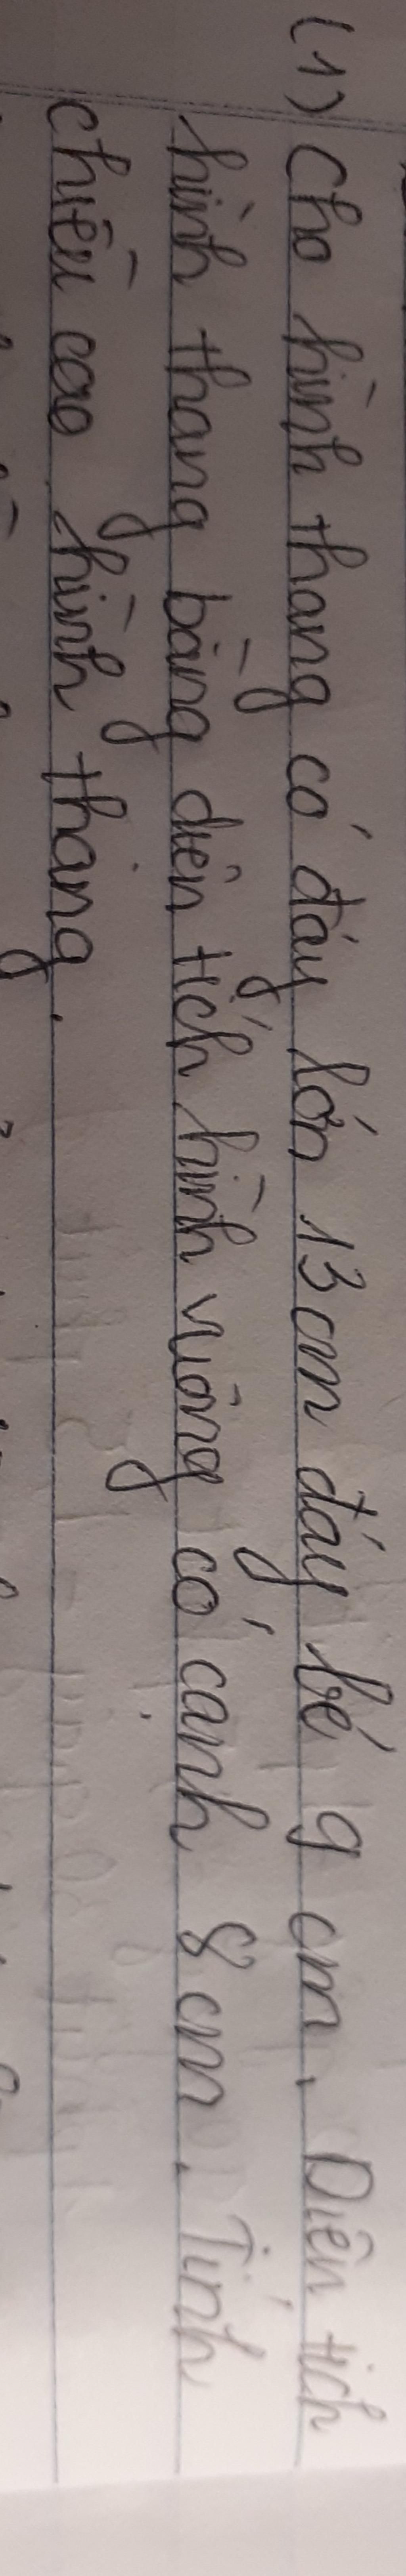 (1) Cho hình thang có đáy lớn 13 cm đáy bé 9 cm. Diện tích
hình thang bằng diện tích hình vuông có cạnh 8 cm. Tính
chiều cao hình thang.